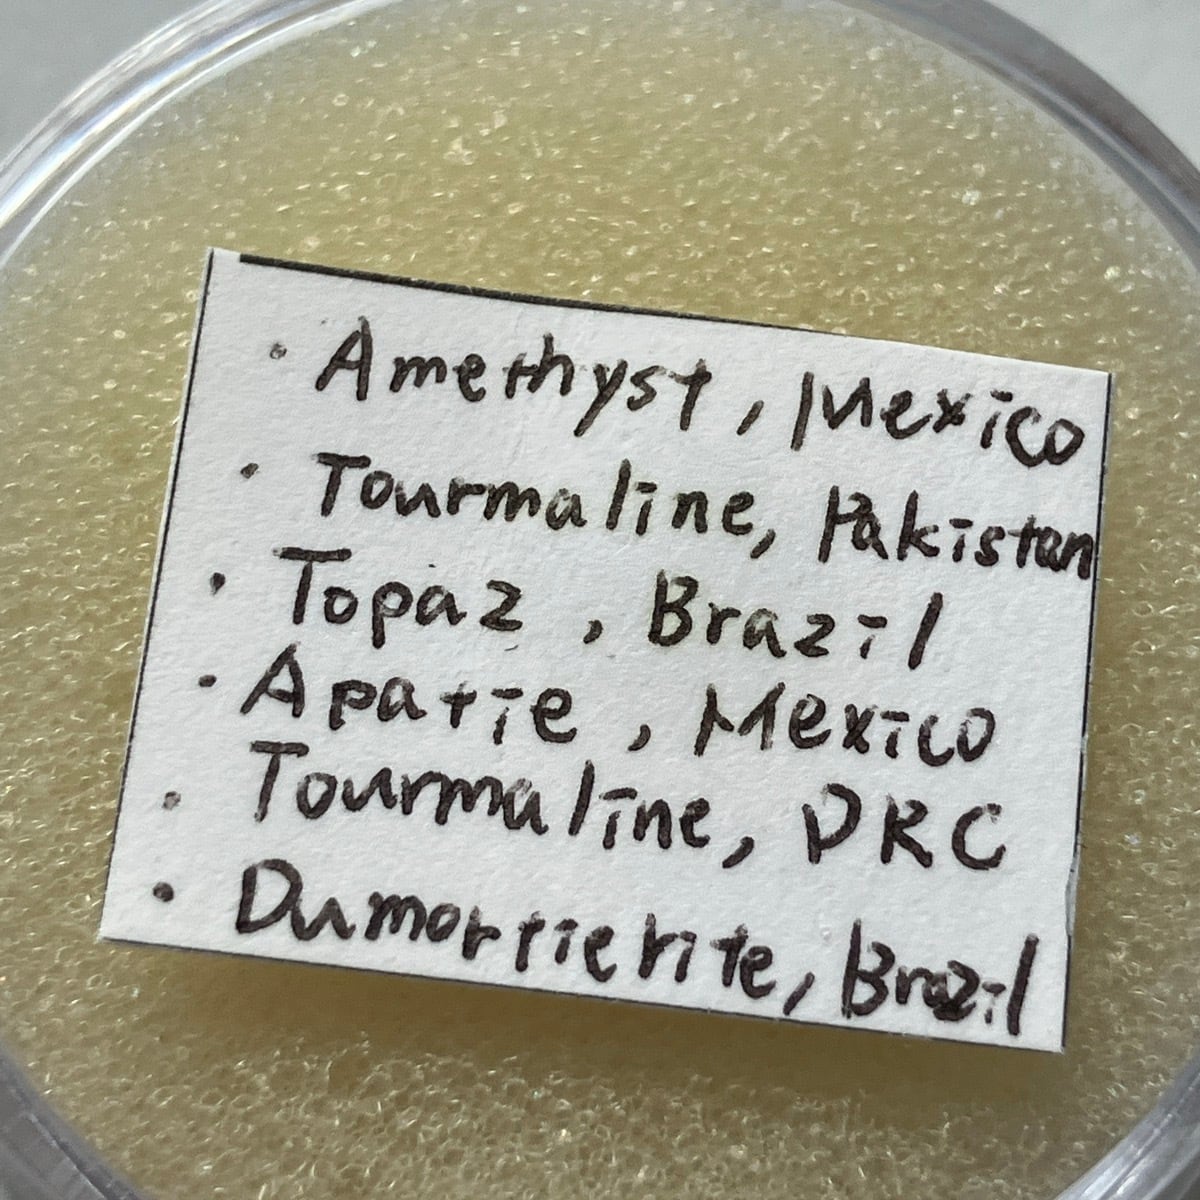 · Amethyst, Mexico
· Tourmaline, Pakistan
· Topaz, Brazil
· Apatie, Mexico
· Tourmaline, DRC
· Dumortierite, Brazil